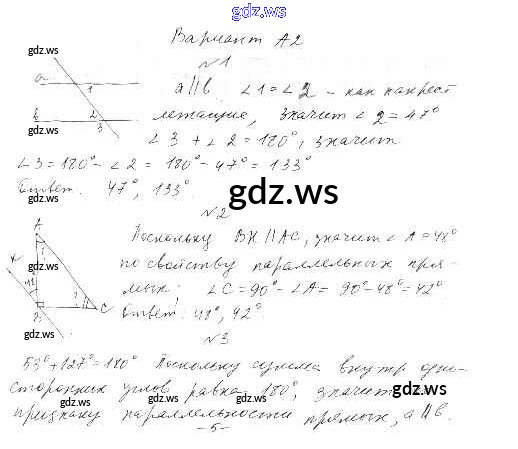 gdz.ws
Вариант А2
gdz.ws
№1
a
1
a||b ∠1=∠2 - как накрест
b
2
3
лежащие, значит ∠2=47°
gdz.ws
∠3+∠2=180°, значит
∠3=180°-∠2=180°-47°=133°
Ответ: 47°, 133°
gdz.ws
gdz.ws
№2
A
Поскольку BK||AC, значит ∠A=48°
gdz.ws
по свойству параллельных пря-
K
48°
?
мых. ∠C=90°-∠A=90°-48°=42°
B
C
Ответ: 48°, 42°.
gdz.ws
№3
53°+127°=180° Поскольку сумма внутр. одно-
сторонних углов равна 180°, значит по
gdz.ws
признаку параллельности прямых, a||b.
gdz.ws
gdz.ws
-5-
gdz.ws